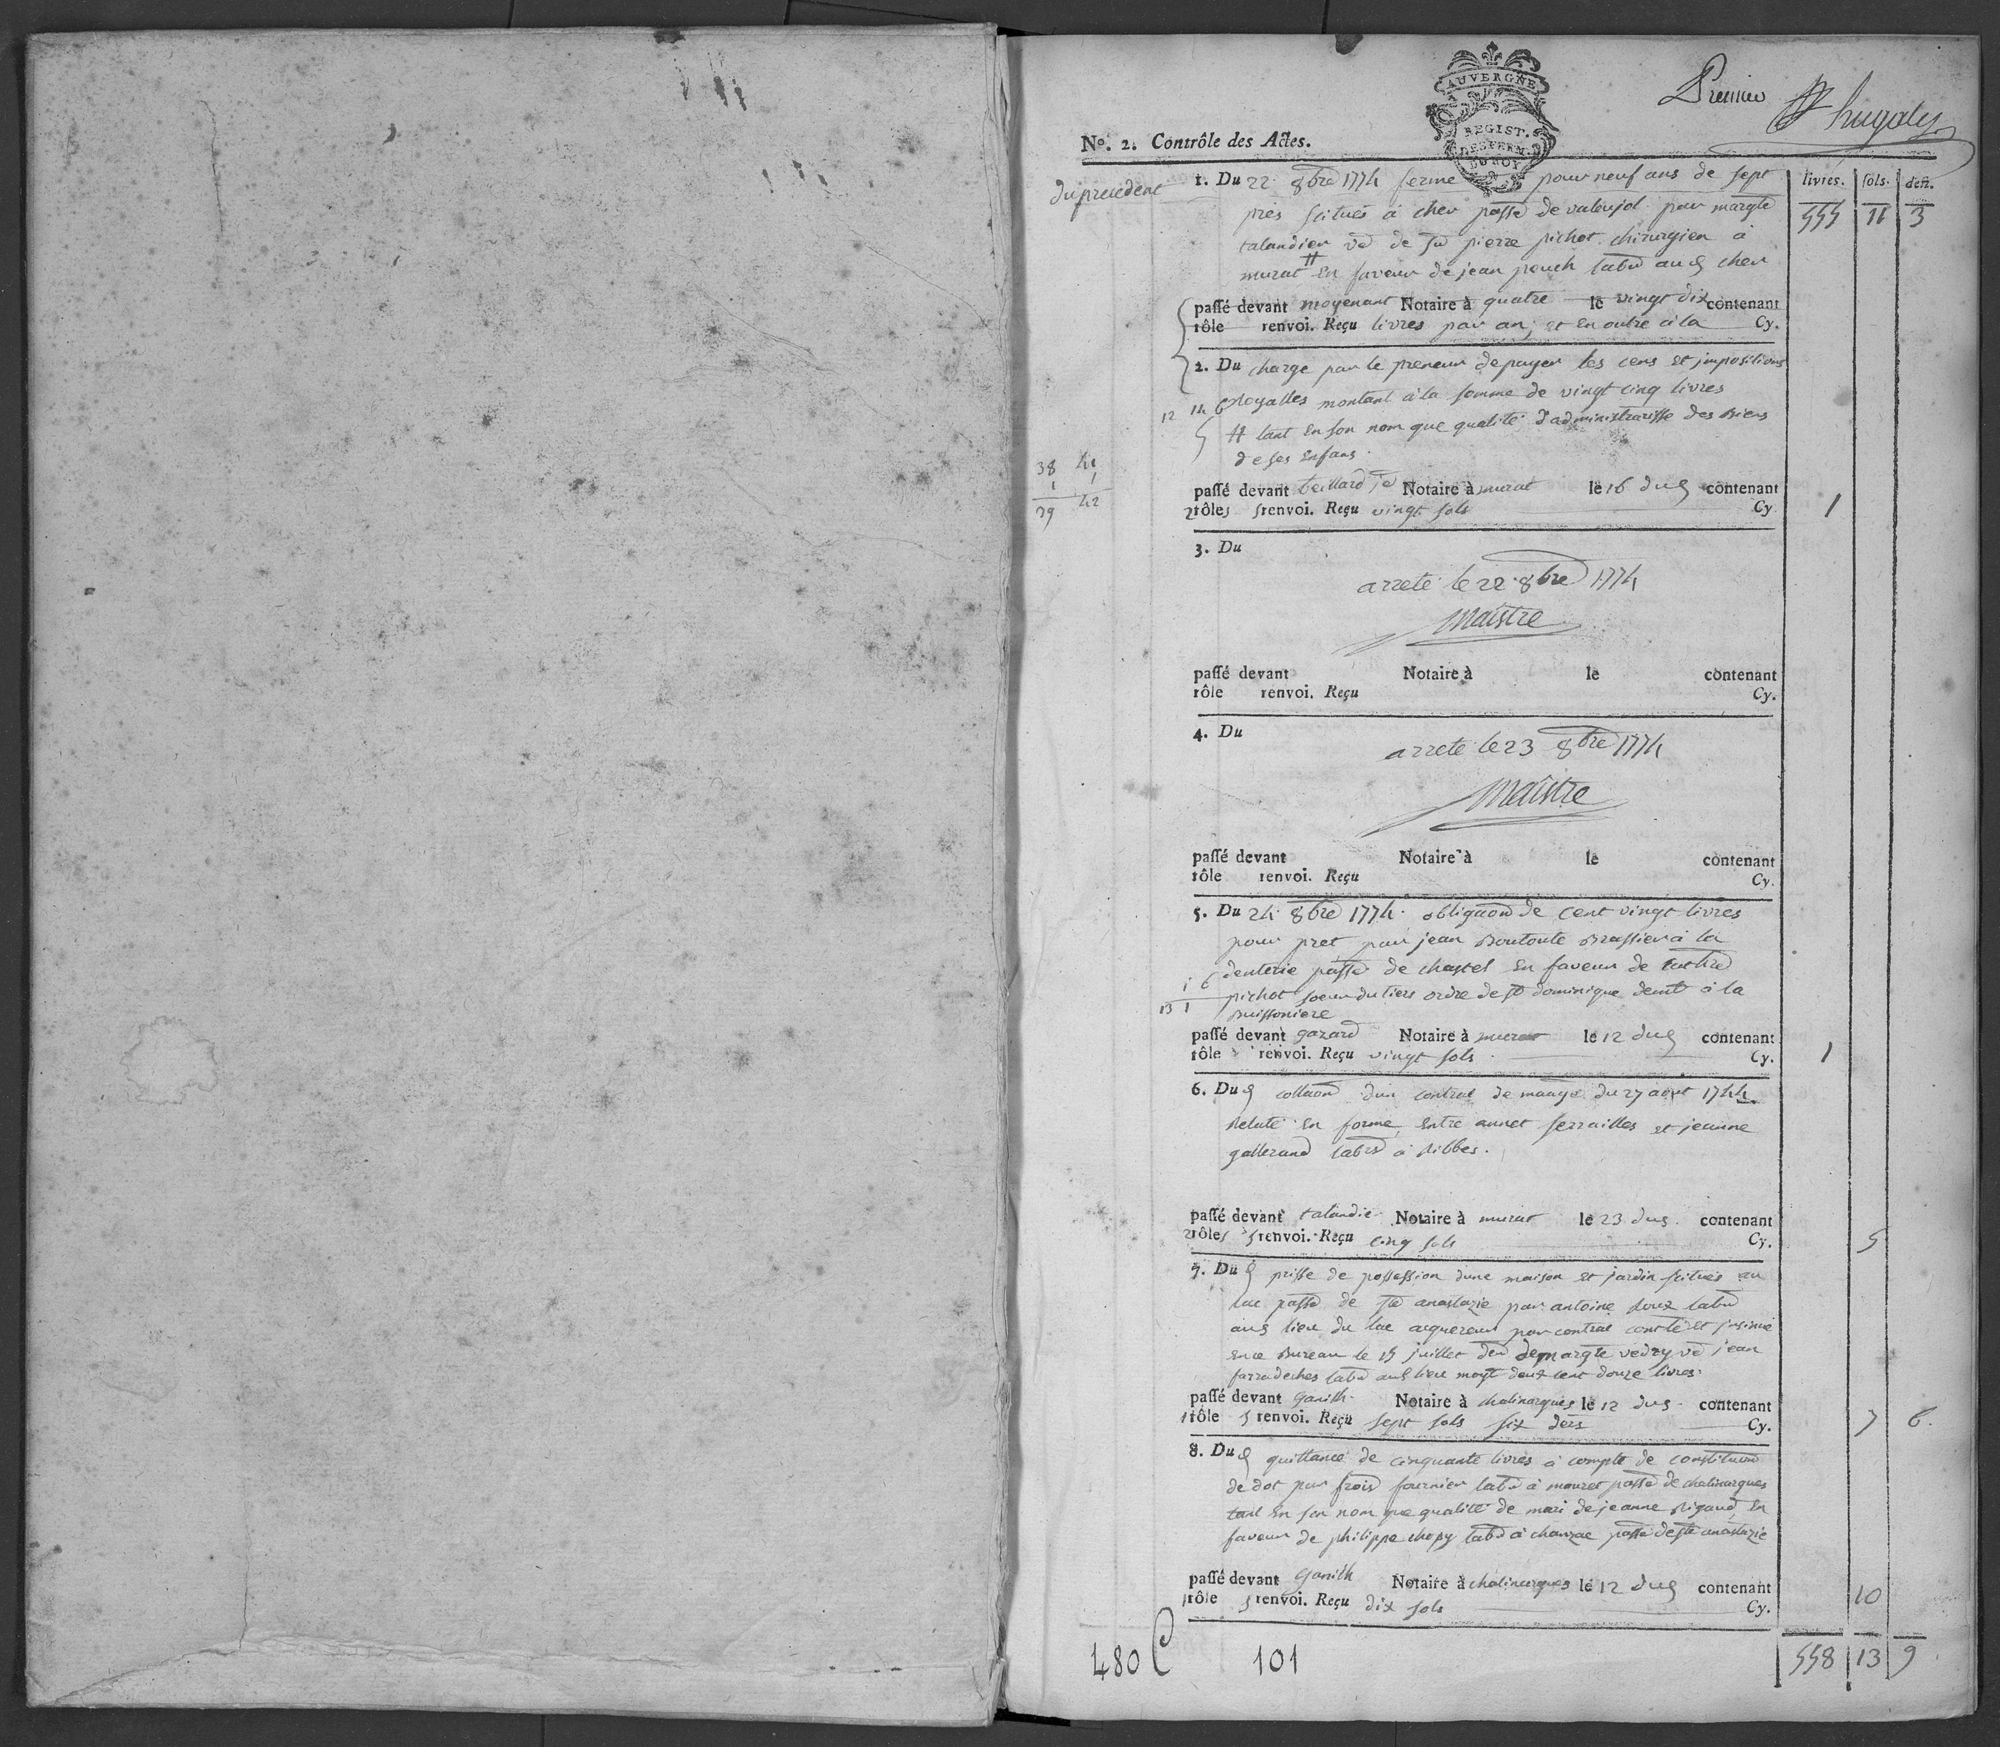 AUVERGNE
REGIST.
DES FERM.
DU ROY
Premier
hugaly
No. 2. Contrôle des Actes.
du precedent
livres. sols. den.
555 11 3
1. Du 22 8bre 1774 ferme pour neuf ans de sept
prés scitués à cher passe de valeujol par margte
talandier ve de Sr pierre pichot chirurgien à
murat # en faveur de jean peuch labr aud cher
passé devant moyenant Notaire à quatre le vingt dix contenant
rôle renvoi. Reçu livres par an, et en outre à la Cy.
2. Du charge par le preneur de payer les cens et impositions
12 14 6
Royalles montant à la somme de vingt cinq livres
# tant en son nom que qualité d'administrarisse des Biens
de ses enfans.
38 41
1 1
39 42
passé devant teillard je Notaire à murat le 16 dud contenant
2 rôles 5 renvoi. Reçu vingt sols Cy. 1
3. Du
arreté le 22 8bre 1774
Maistre
passé devant Notaire à le contenant
rôle renvoi. Reçu Cy.
4. Du
arreté le 23 8bre 1774
Maistre
passé devant Notaire à le contenant
rôle renvoi. Reçu Cy.
5. Du 24 8bre 1774. obligaon de cent vingt livres
pour pret par jean Boutoute Brassier à la
denterie passe de chastel en faveur de cathe
1 6
13 1
pichot soeur du tiers ordre de st dominique demt à la
Buissoniere
passé devant gazard Notaire à murat le 12 dud contenant
rôle renvoi. Reçu vingt sols Cy. 1
6. Dud collaon d'un contrat de mauge du 27 aout 1744
Relaté en forme, entre annet serrailles et jeanne
gallerand labrs à Ribbes.
passé devant talandie Notaire à murat le 23 dud. contenant
2 rôles 5 renvoi. Reçu cinq sols Cy. 5
7. Dud prisse de possession d'une maison et jardin scitués au
lac passe de ste anastazie par antoine Roux labr
aud lieu du lac acquereur par contrat conlé et insinué
en ce Bureau le 15 juillet der de margte vedry ve jean
farradeches labr aud lieu moyt deux cent douze livres.
passé devant Ganilh Notaire à chalinargues le 12 dud. contenant
1 rôle 5 renvoi. Reçu sept sols six ders Cy. 7 6.
8. Dud quittance de cinquante livres à compte de constituon
de dot par frois fournier labr à mouret passe de chalinargues
tant en son nom que qualité de mari de jeanne Rigaud, en
faveur de philippe chopy labr à chanzac passe de ste anastazie
passé devant Ganilh Notaire à chalinargues le 12 dud contenant
1 rôle 5 renvoi. Reçu dix sols Cy. 10
480 C 101
558 13 9